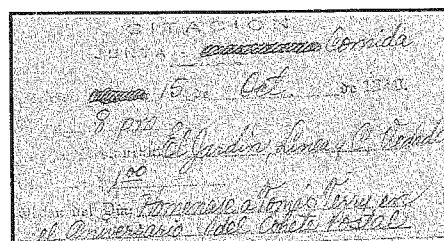 CITACION
JUNTA: Comida
15 de Oct. de 19
8 pm
El Jardin, Linea y C. Vedado
1.00
Orden del Dia: Homenaje a Tomás Terry en
el Aniversario del Cohete Postal